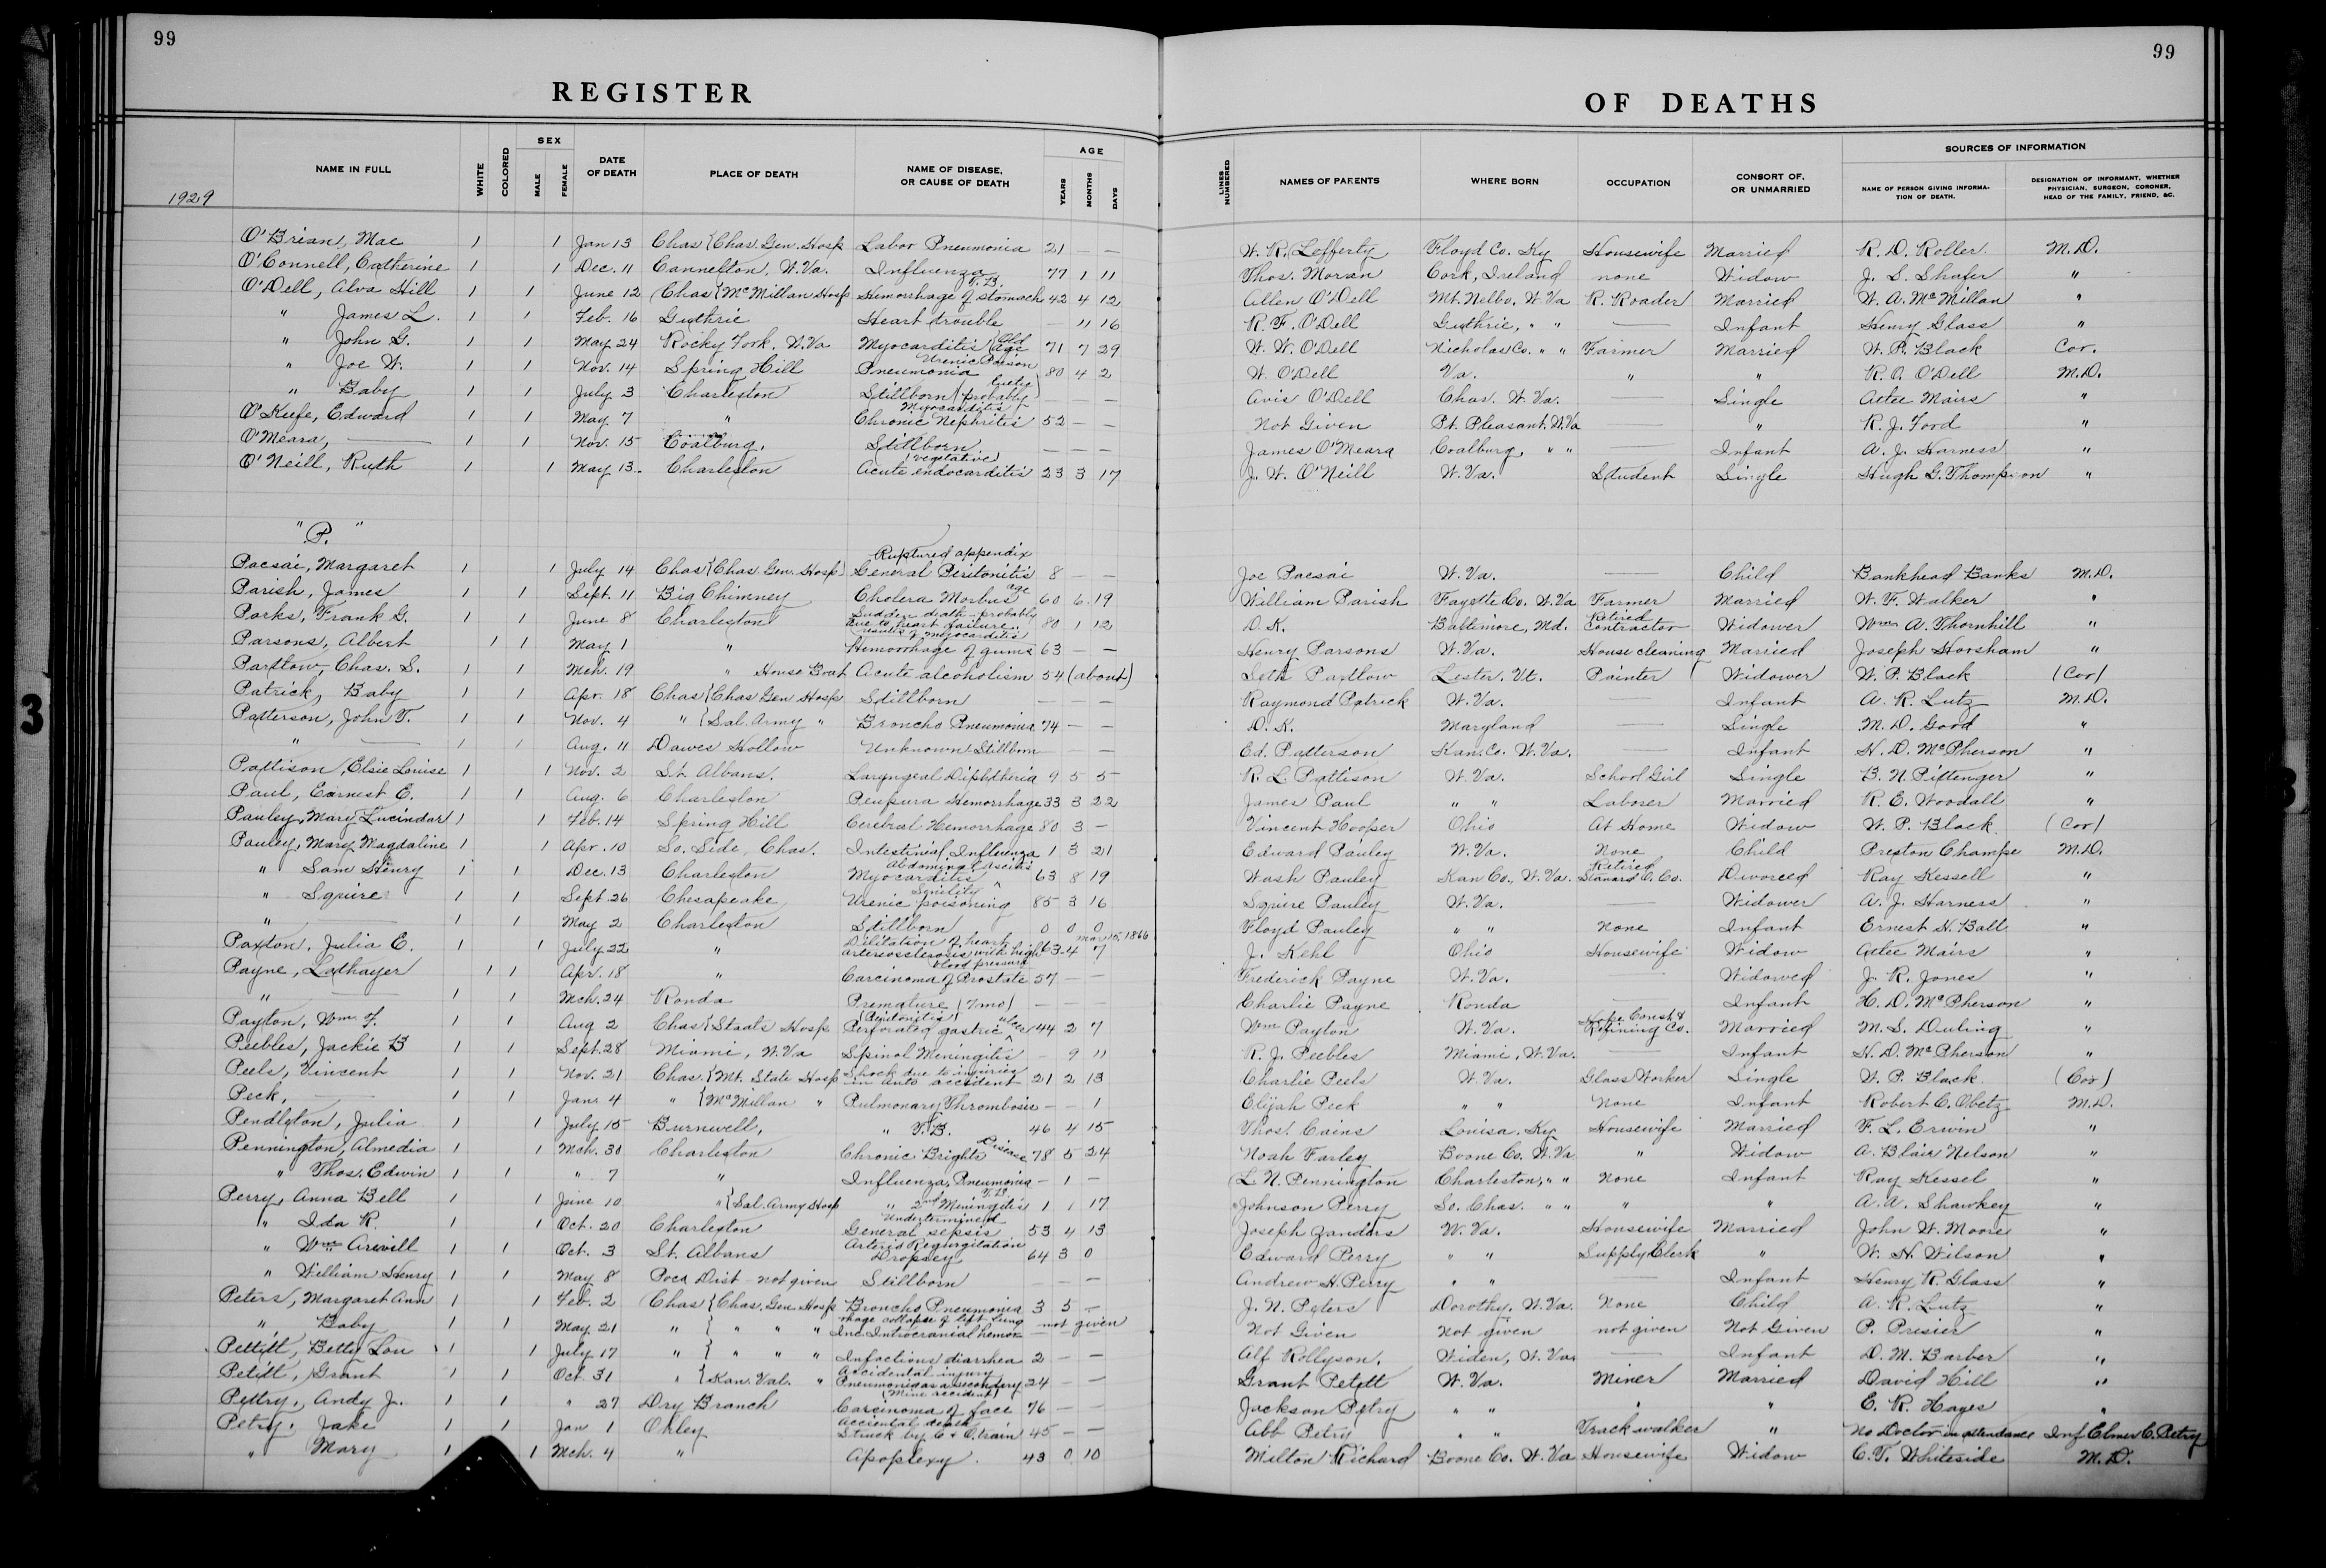 99
99
REGISTER
OF DEATHS
1929
NAME IN FULL WHITE COLORED SEX MALE FEMALE DATE OF DEATH PLACE OF DEATH NAME OF DISEASE, OR CAUSE OF DEATH AGE YEARS MONTHS DAYS
LINES NUMBERED NAMES OF PARENTS WHERE BORN OCCUPATION CONSORT OF, OR UNMARRIED SOURCES OF INFORMATION NAME OF PERSON GIVING INFORMATION OF DEATH. DESIGNATION OF INFORMANT, WHETHER PHYSICIAN, SURGEON, CORONER, HEAD OF THE FAMILY, FRIEND, &C.
O'Brian, Mae 1 1 Jan 13 Chas {Chas. Gen. Hosp Labor Pneumonia 21 — — W. R. Lefferty Floyd Co. Ky Housewife Married R. D. Roller. M.D.
O'Connell, Catherine 1 1 Dec. 11 Cannelton, W.Va. Influenza 77 1 11 Thos. Moran Cork, Ireland none Widow J. S. Shafer "
O'Dell, Alva Hill 1 1 June 12 Chas {McMillan Hosp T.B. Hemorrhage of stomach 42 4 12 Allen O'Dell Mt. Nelbo, W.Va R. Roader Married W. A. McMillan "
" James L. 1 1 Feb. 16 Guthrie Heart trouble — 11 16 R. F. O'Dell Guthrie, " " — Infant Henry Glass "
" John G. 1 1 May 24 Rocky Fork, W.Va Myocarditis (Old age 71 7 29 W. W. O'Dell Nicholas Co. " " Farmer Married W. P. Black Cor.
" Joe W. 1 1 Nov. 14 Spring Hill Urenic Poison Pneumonia 80 4 2 W. O'Dell Va. " " R. O. O'Dell M.D.
" Baby 1 1 July 3 Charleston Stillborn (probably luetic) — — — Avis O'Dell Chas. W. Va. Single Aetee Mairs "
O'Keefe, Edward 1 1 May 7 " Myocarditis Chronic Nephritis 52 — — Not Given Pt. Pleasant, W.Va — " R. J. Ford "
O'Meara, — 1 1 Nov. 15 Coalburg, Stillborn — — — James O'Meara Coalburg, " " Infant A. J. Harness "
O'Neill, Ruth 1 1 May 13. Charleston (vegetative) Acute endocarditis 23 3 17 J. W. O'Neill W. Va. Student Single Hugh G. Thompson "
"P."
Pacsai, Margaret 1 1 July 14 Chas {Chas. Gen. Hosp) Ruptured appendix General Peritonitis 8 — — Joe Pacsai W. Va. — Child Bankhead Banks M.D.
Parish, James 1 1 Sept. 11 Big Chimney Cholera Morbus age 60 6 19 William Parish Fayette Co. W.Va Farmer Married W. F. Walker "
Parks, Frank G. 1 1 June 8 Charleston Sudden death—probably due to heart failure. results of myocarditis 80 1 12 D. K. Baltimore, Md. Retired Contractor Widower Wm. A. Thornhill "
Parsons, Albert 1 1 May 1 " Hemorrhage of gums 63 — — Henry Parsons W. Va. House cleaning Married Joseph Horsham "
Partlow, Chas. S. 1 1 Mch. 19 " House Boat Acute alcoholism 54 (about) Seth Partlow Lester, Vt. Painter Widower W. P. Black (Cor)
Patrick, Baby 1 1 Apr. 18 Chas {Chas Gen Hosp Stillborn — — Raymond Patrick W. Va. Infant A. R. Lutz M.D.
Patterson, John T. 1 1 Nov. 4 " {Sal. Army " Broncho Pneumonia 74 — — D. K. Maryland — Single M. D. Good "
" — 1 1 Aug. 11 Dawes Hollow Unknown. Stillborn — — Ed. Patterson Kan. Co. W. Va. — Infant H. D. McPherson "
Pattison, Elsie Louise 1 1 Nov. 2 St. Albans. Laryngeal Diphtheria 9 5 5 R. L. Pattison W. Va. School Girl Single B. N. Pittenger "
Paul, Earnest E. 1 1 Aug. 6 Charleston Peupura Hemorrhage 33 3 22 James Paul " " Laborer Married R. E. Woodall "
Pauley, Mary Lucindar 1 1 Feb. 14 Spring Hill Cerebral Hemorrhage 80 3 — Vincent Hooper Ohio At Home Widow W. P. Black (Cor)
Pauley, Mary Magdaline 1 1 Apr. 10 So. Side, Chas. Intestinal Influenza 1 3 21 Edward Pauley W. Va. None Child Preston Champe M.D.
" Sam Henry 1 1 Dec. 13 Charleston Abdominal Ascetis Myocarditis 63 8 19 Wash Pauley Kan Co., W. Va. Retired Standard O. Co. Divorced Ray Kessell "
" Squire 1 1 Sept. 26 Chesapeake Senility Urenic poisoning 85 3 16 Squire Pauley W. Va. — Widower A. J. Harness "
" — 1 1 May 2 Charleston Stillborn 0 0 0 Floyd Pauley " " None Infant Ernest H. Ball "
Paxton, Julia E. 1 1 July 22 " Dilitation of heart arteriosclerosis with high blood pressure Mar. 15, 1866 63 4 7 J. Kehl Ohio Housewife Widow Aetee Mairs "
Payne, Lathayer 1 1 Apr. 18 " Carcinoma of Prostate 57 — — Frederick Payne W. Va. Widowed J. R. Jones "
" — 1 1 Mch. 24 Ronda Premature (7mo) — — — Charlie Payne Ronda — Infant H. D. McPherson "
Payton, Wm. J. 1 1 Aug 2 Chas {Staats Hosp. (Peritonitis) Perforated gastric ulcer 44 2 7 Wm Payton W. Va. Hope Const & Refining Co. Married M. S. Duling "
Peebles, Jackie B 1 1 Sept. 28 Miami, W.Va Spinal Meningitis — 9 11 R. J. Peebles Miami, W.Va. — Infant H. D. McPherson "
Peels, Vincent 1 1 Nov. 21 Chas. {Mt. State Hosp Shock due to injuries in auto accident 21 2 13 Charlie Peels W. Va. Glass Worker Single W. P. Black (Cor)
Peck, — 1 1 Jan. 4 " {McMillan " Pulmonary Thrombosis — — 1 Elijah Peck " " None Infant Robert C. Obetz M.D.
Pendleton, Julia 1 1 July 15 Burnwell, " T.B. 46 4 15 Thos. Cains Louisa, Ky Housewife Married F. L. Erwin "
Pennington, Almedia 1 1 Mch. 30 Charleston Chronic Brights Disease 78 5 24 Noah Farley Boone Co. W. Va " Widow A. Blair Nelson "
" Thos. Edwin 1 1 " 7 " Influenza, Pneumonia — 1 — L. N. Pennington Charleston, " " None Infant Ray Kessel "
Perry, Anna Bell 1 1 June 10 " {Sal. Army Hosp " 2nd T.B. Meningitis 1 1 17 Johnson Perry So. Chas. " " " " A. A. Shawkey "
" Ida R. 1 1 Oct. 20 Charleston Undetermined General sepsis 53 4 13 Joseph Zanders W. Va. Housewife Married John W. Moore "
" Wm. Arevill 1 1 Oct. 3 St. Albans Arterio Regurgitation Dropsey 64 3 0 Edward Perry " " Supply Clerk " W. H. Wilson "
" William Henry 1 1 May 8 Poca Dist — not given Stillborn — — — Andrew H. Perry " " — Infant Henry R. Glass "
Peters, Margaret Ann 1 1 Feb. 2 Chas {Chas. Gen. Hosp Broncho Pneumonia 3 5 — J. N. Peters Dorothy, W. Va. None Child A. R. Lutz "
" Baby 1 1 May 21 " { " " " rhage collapse of left lung Inc. Introcranial hemor not given Not Given not given not given Not Given P. Presier "
Pettitt, Betty Lou 1 1 July 17 " { " " " Infectious diarrhea 2 — — Alf Rollyson. Widen, W. Va. — Infant D. M. Barber "
Petitt, Grant 1 1 Oct. 31 " {Kan. Val. " Accidental injury Pneumonia as a secondary (Mine accident) 24 — — Grant Petitt W. Va. Miner Married David Hill "
Pettry, Andy J. 1 1 " 27 Dry Branch Carcinoma of face 76 — — Jackson Petry " " " " E. R. Hayes "
Petry, Jake 1 1 Jan 1 Ohley Acciental death Struck by C & O train 45 — — Abb Petry " " Track walker " No Doctor in attendance Inf. Elmer C. Petry
" Mary 1 1 Mch. 4 " Apoplexy. 43 0 10 Milton Richard Boone Co. W. Va Housewife Widow C. T. Whiteside M.D.
3